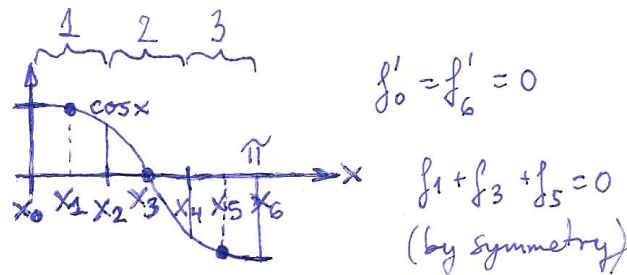 1 2 3
cos x
π
x
x₀ x₁ x₂ x₃ x₄ x₅ x₆
f₀' = f₆' = 0
f₁ + f₃ + f₅ = 0
(by symmetry)